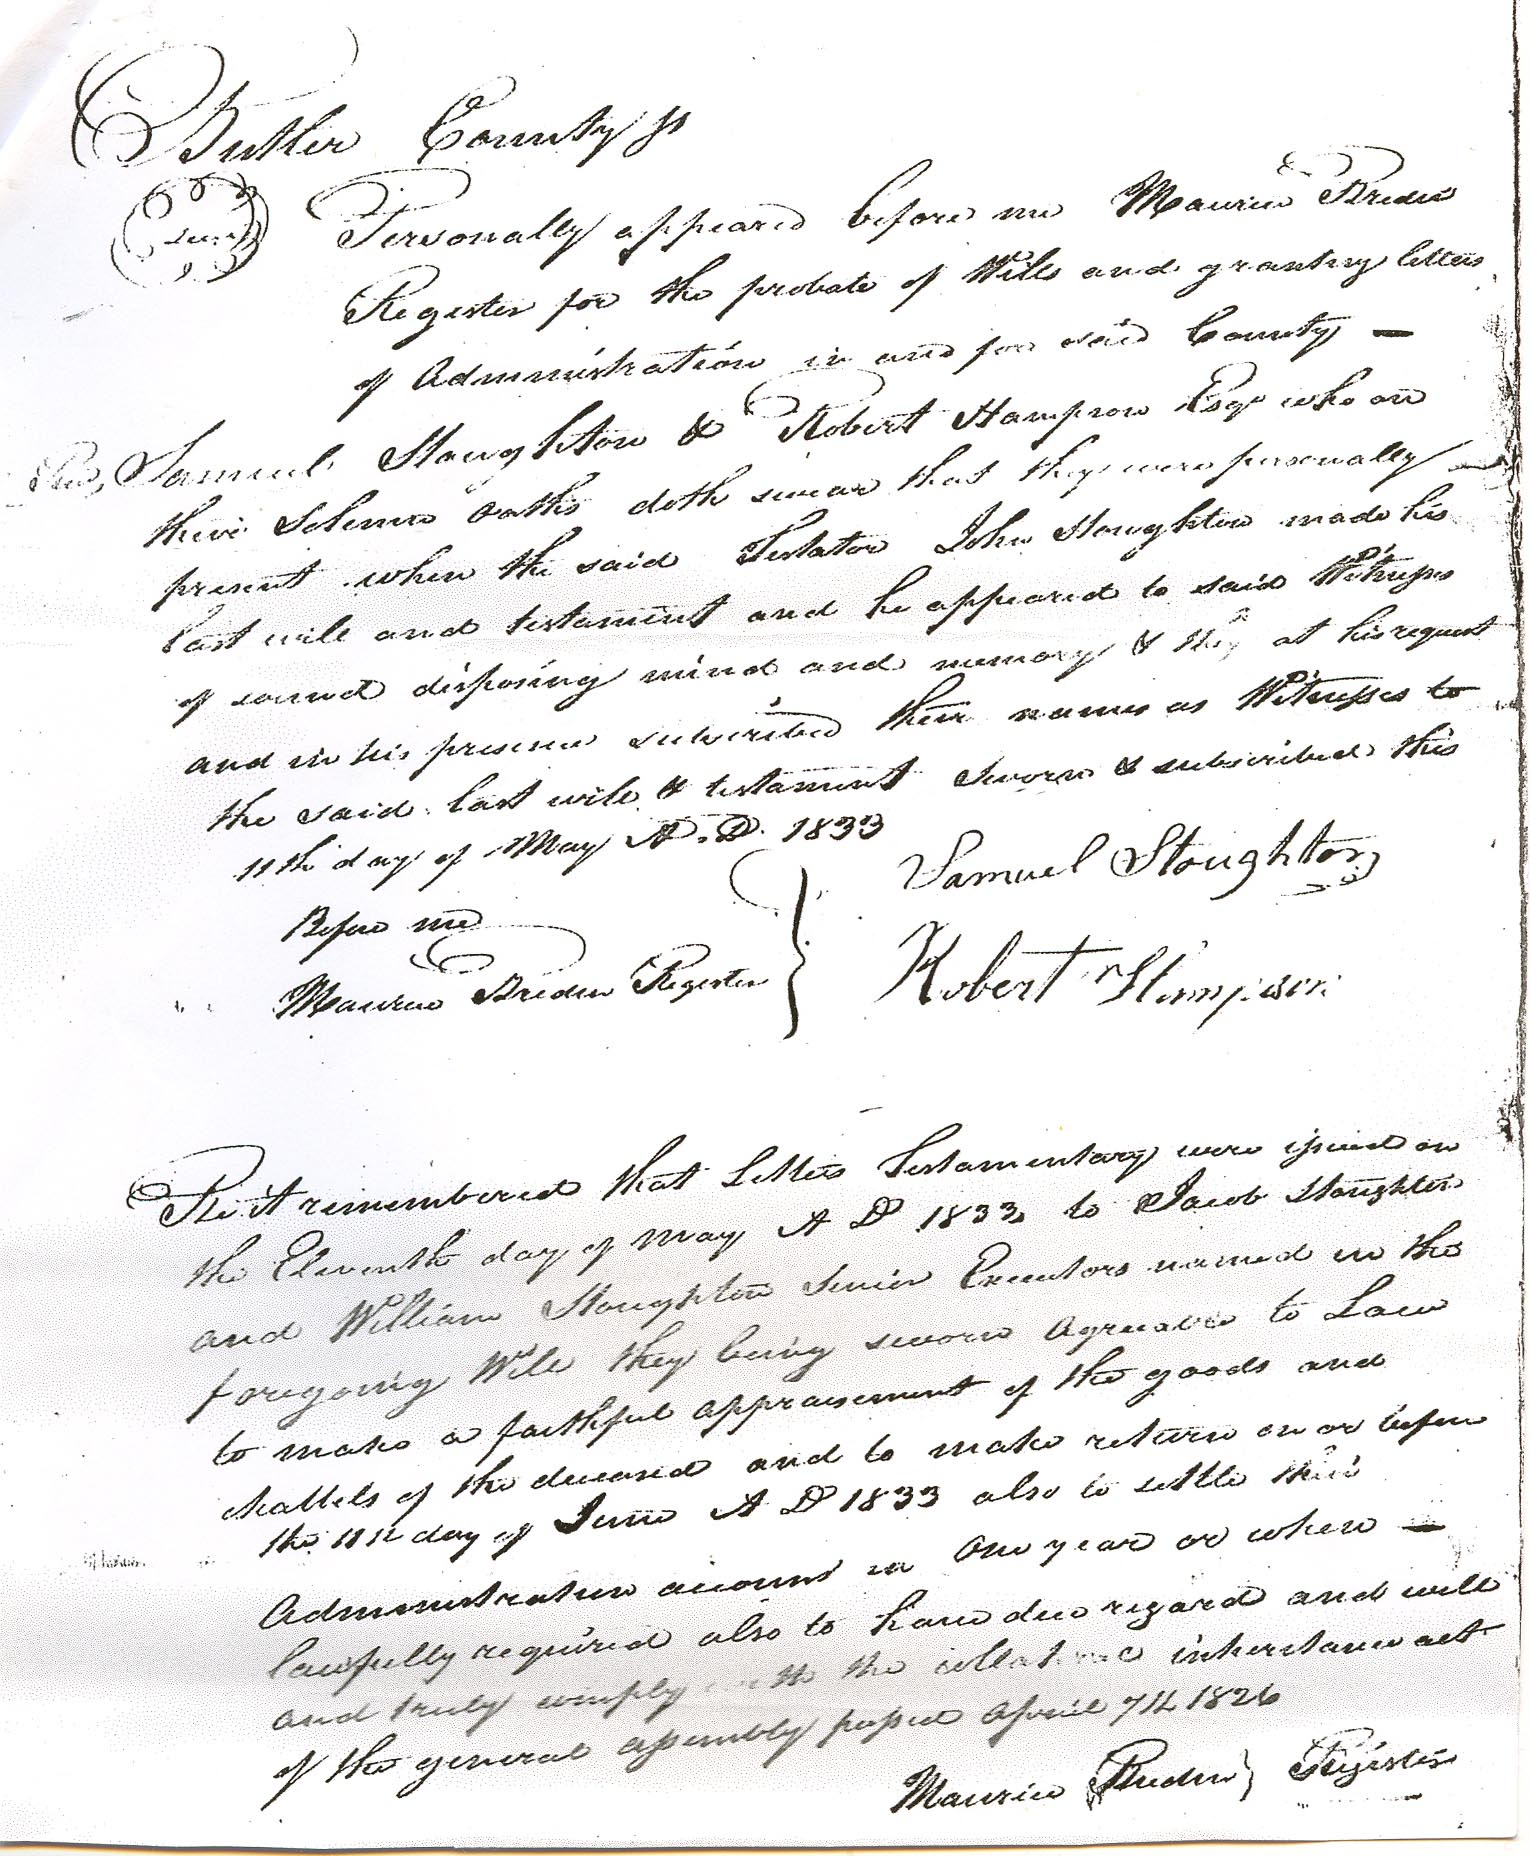 Butler County ss
Seal
Personally appeared before me Maurice Bredin
Register for the probate of Wills and granting letters
of Administration in and for said County —
Samuel Stoughton & Robert Hampson Esqr who on
their Solemn oaths doth swear that they were personally
present when the said Testator John Stoughton made his
last will and testament and he appeared to said Witnesses
of sound disposing mind and memory & they at his request
and in his presence subscribed their names as Witnesses to
the said last will & testament Sworn & subscribed this
11th day of May A.D. 1833
Before me
Maurice Bredin Register
Samuel Stoughton
Robert Hampson
Be it remembered that Letters Testamentary were issued on
the Eleventh day of May A D 1833 to Jacob Stoughton
and William Stoughton Senior Executors named in the
foregoing Will they being sworn agreeable to Law
to make a faithful appraisement of the goods and
chattels of the deceased and to make return on or before
the 11th day of June A D 1833 also to settle their
Administration account in one year or when —
lawfully required also to have due regard and well
and truly comply with the collateral inheritance act
of the general assembly passed April 7th 1826
Maurice Bredin } Register